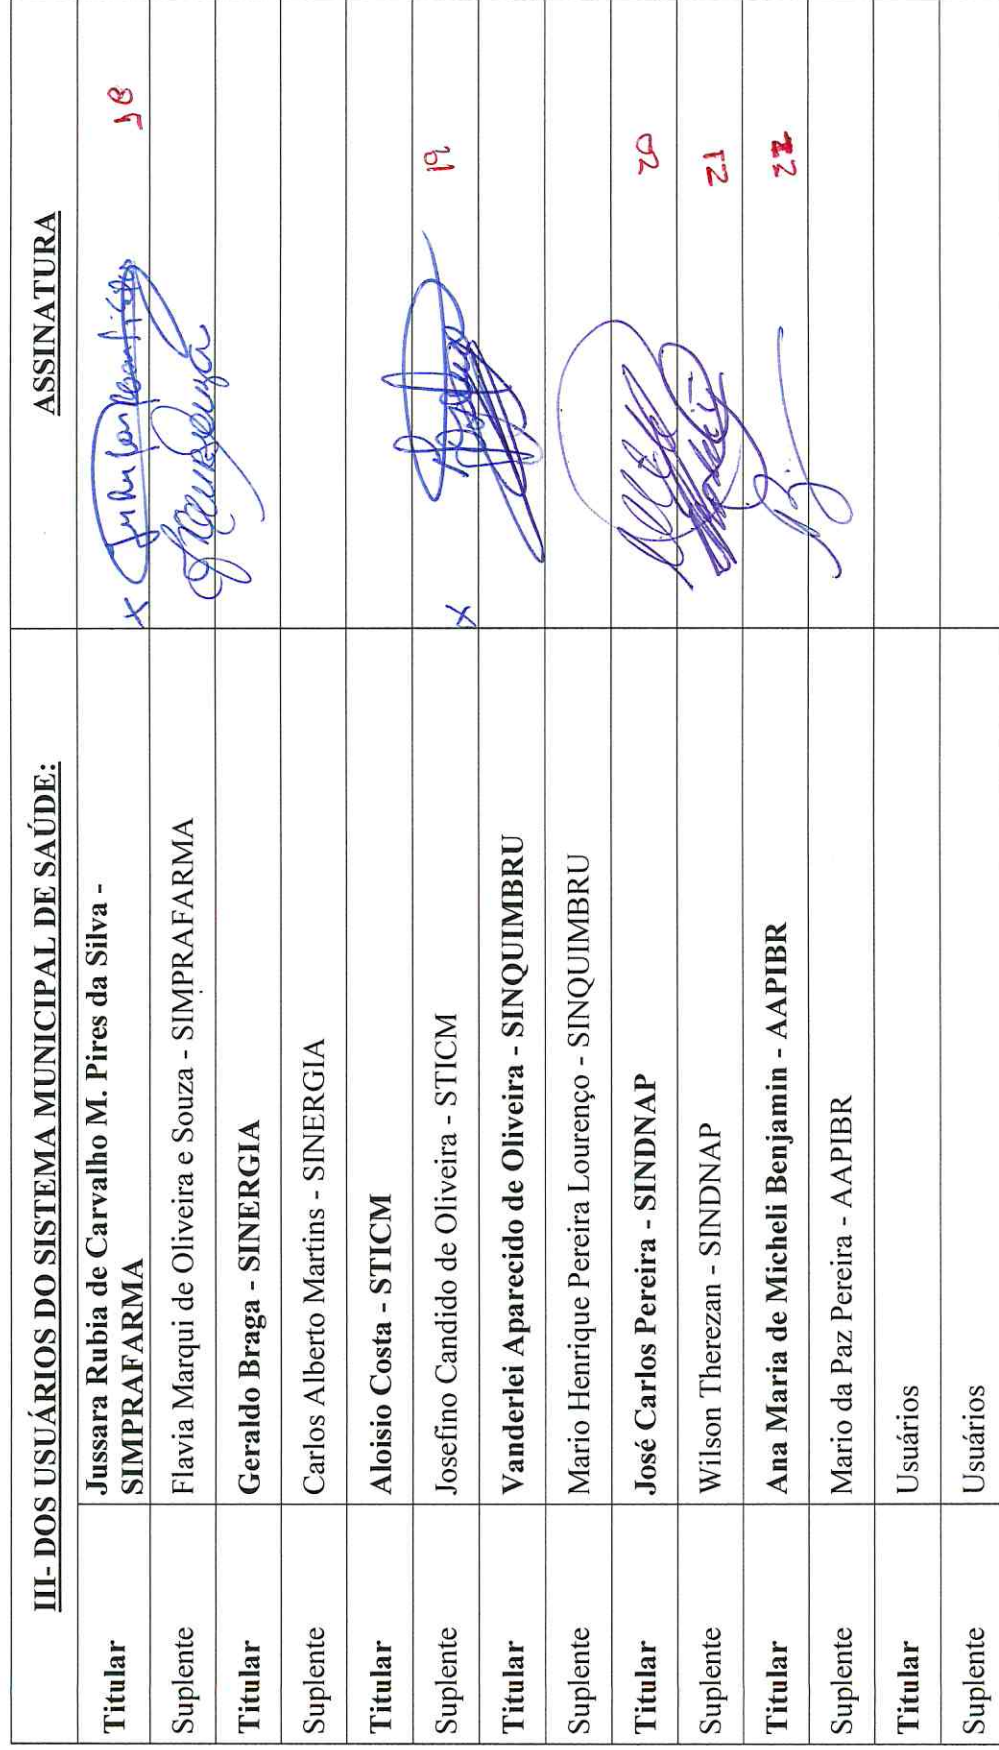 III- DOS USUÁRIOS DO SISTEMA MUNICIPAL DE SAÚDE: ASSINATURA
Titular Jussara Rubia de Carvalho M. Pires da Silva -
SIMPRAFARMA x 18
Suplente Flavia Marqui de Oliveira e Souza - SIMPRAFARMA
Titular Geraldo Braga - SINERGIA
Suplente Carlos Alberto Martins - SINERGIA
Titular Aloisio Costa - STICM
Suplente Josefino Candido de Oliveira - STICM x 19
Titular Vanderlei Aparecido de Oliveira - SINQUIMBRU
Suplente Mario Henrique Pereira Lourenço - SINQUIMBRU
Titular José Carlos Pereira - SINDNAP 20
Suplente Wilson Therezan - SINDNAP 21
Titular Ana Maria de Micheli Benjamin - AAPIBR 22
Suplente Mario da Paz Pereira - AAPIBR
Titular Usuários
Suplente Usuários